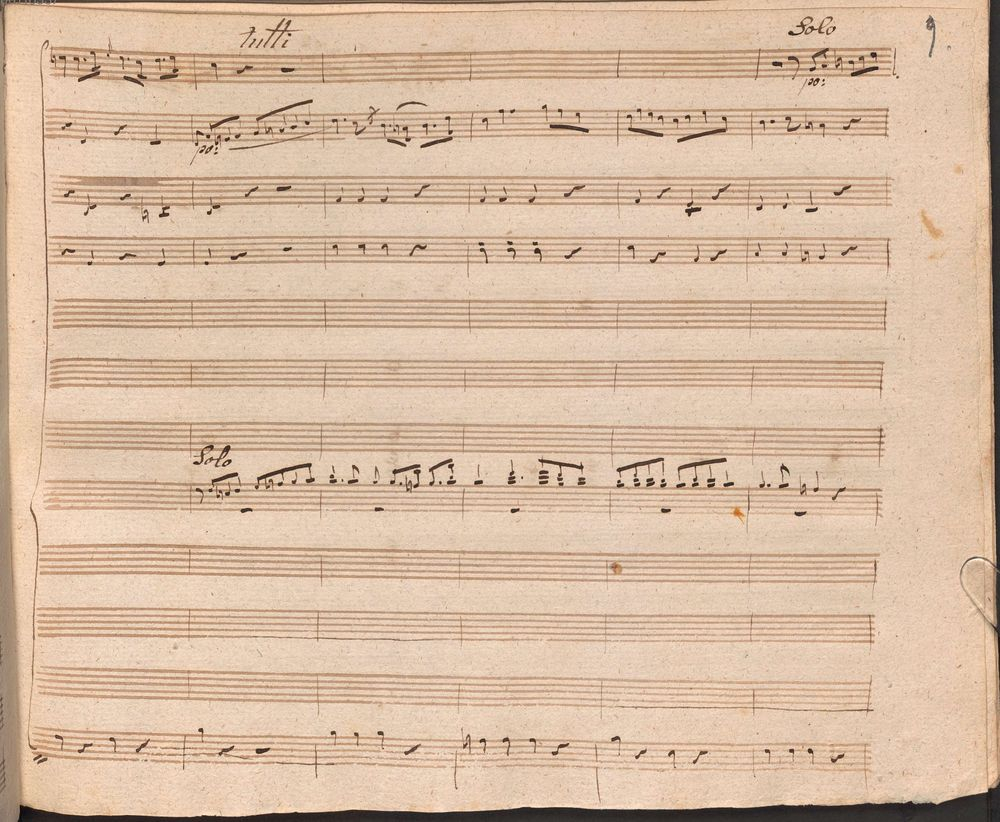 tutti
Solo
9.
po:
po:
Solo